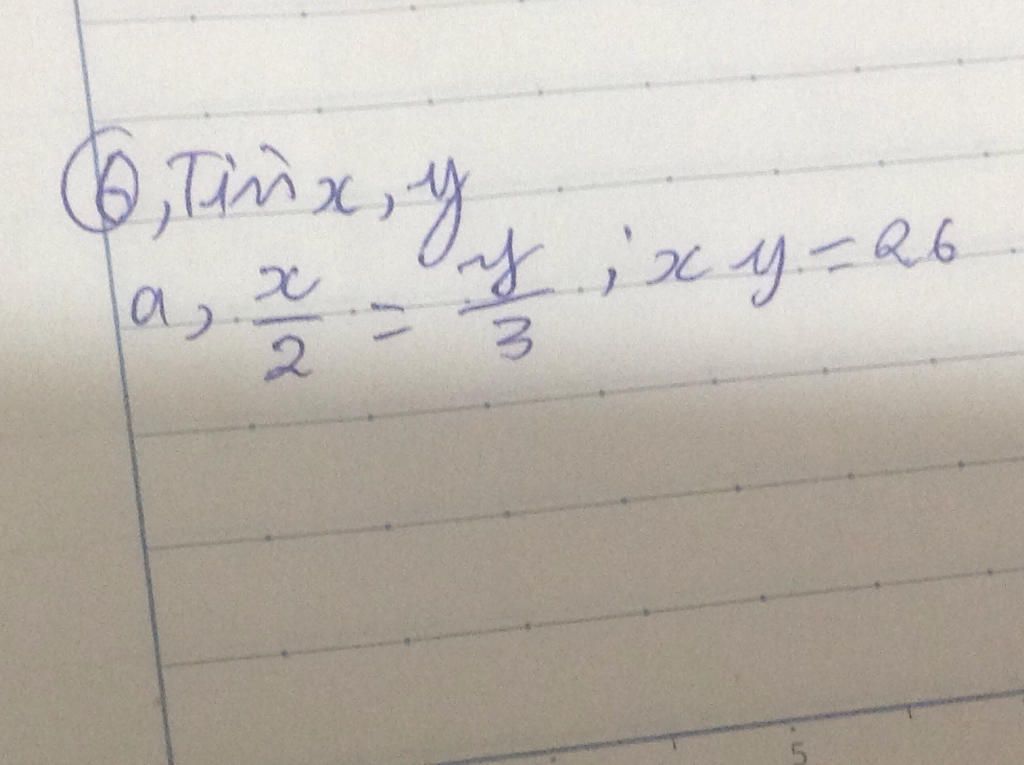 6, Tìm x, y
a, x/2 = y/3 ; x y = 26
5